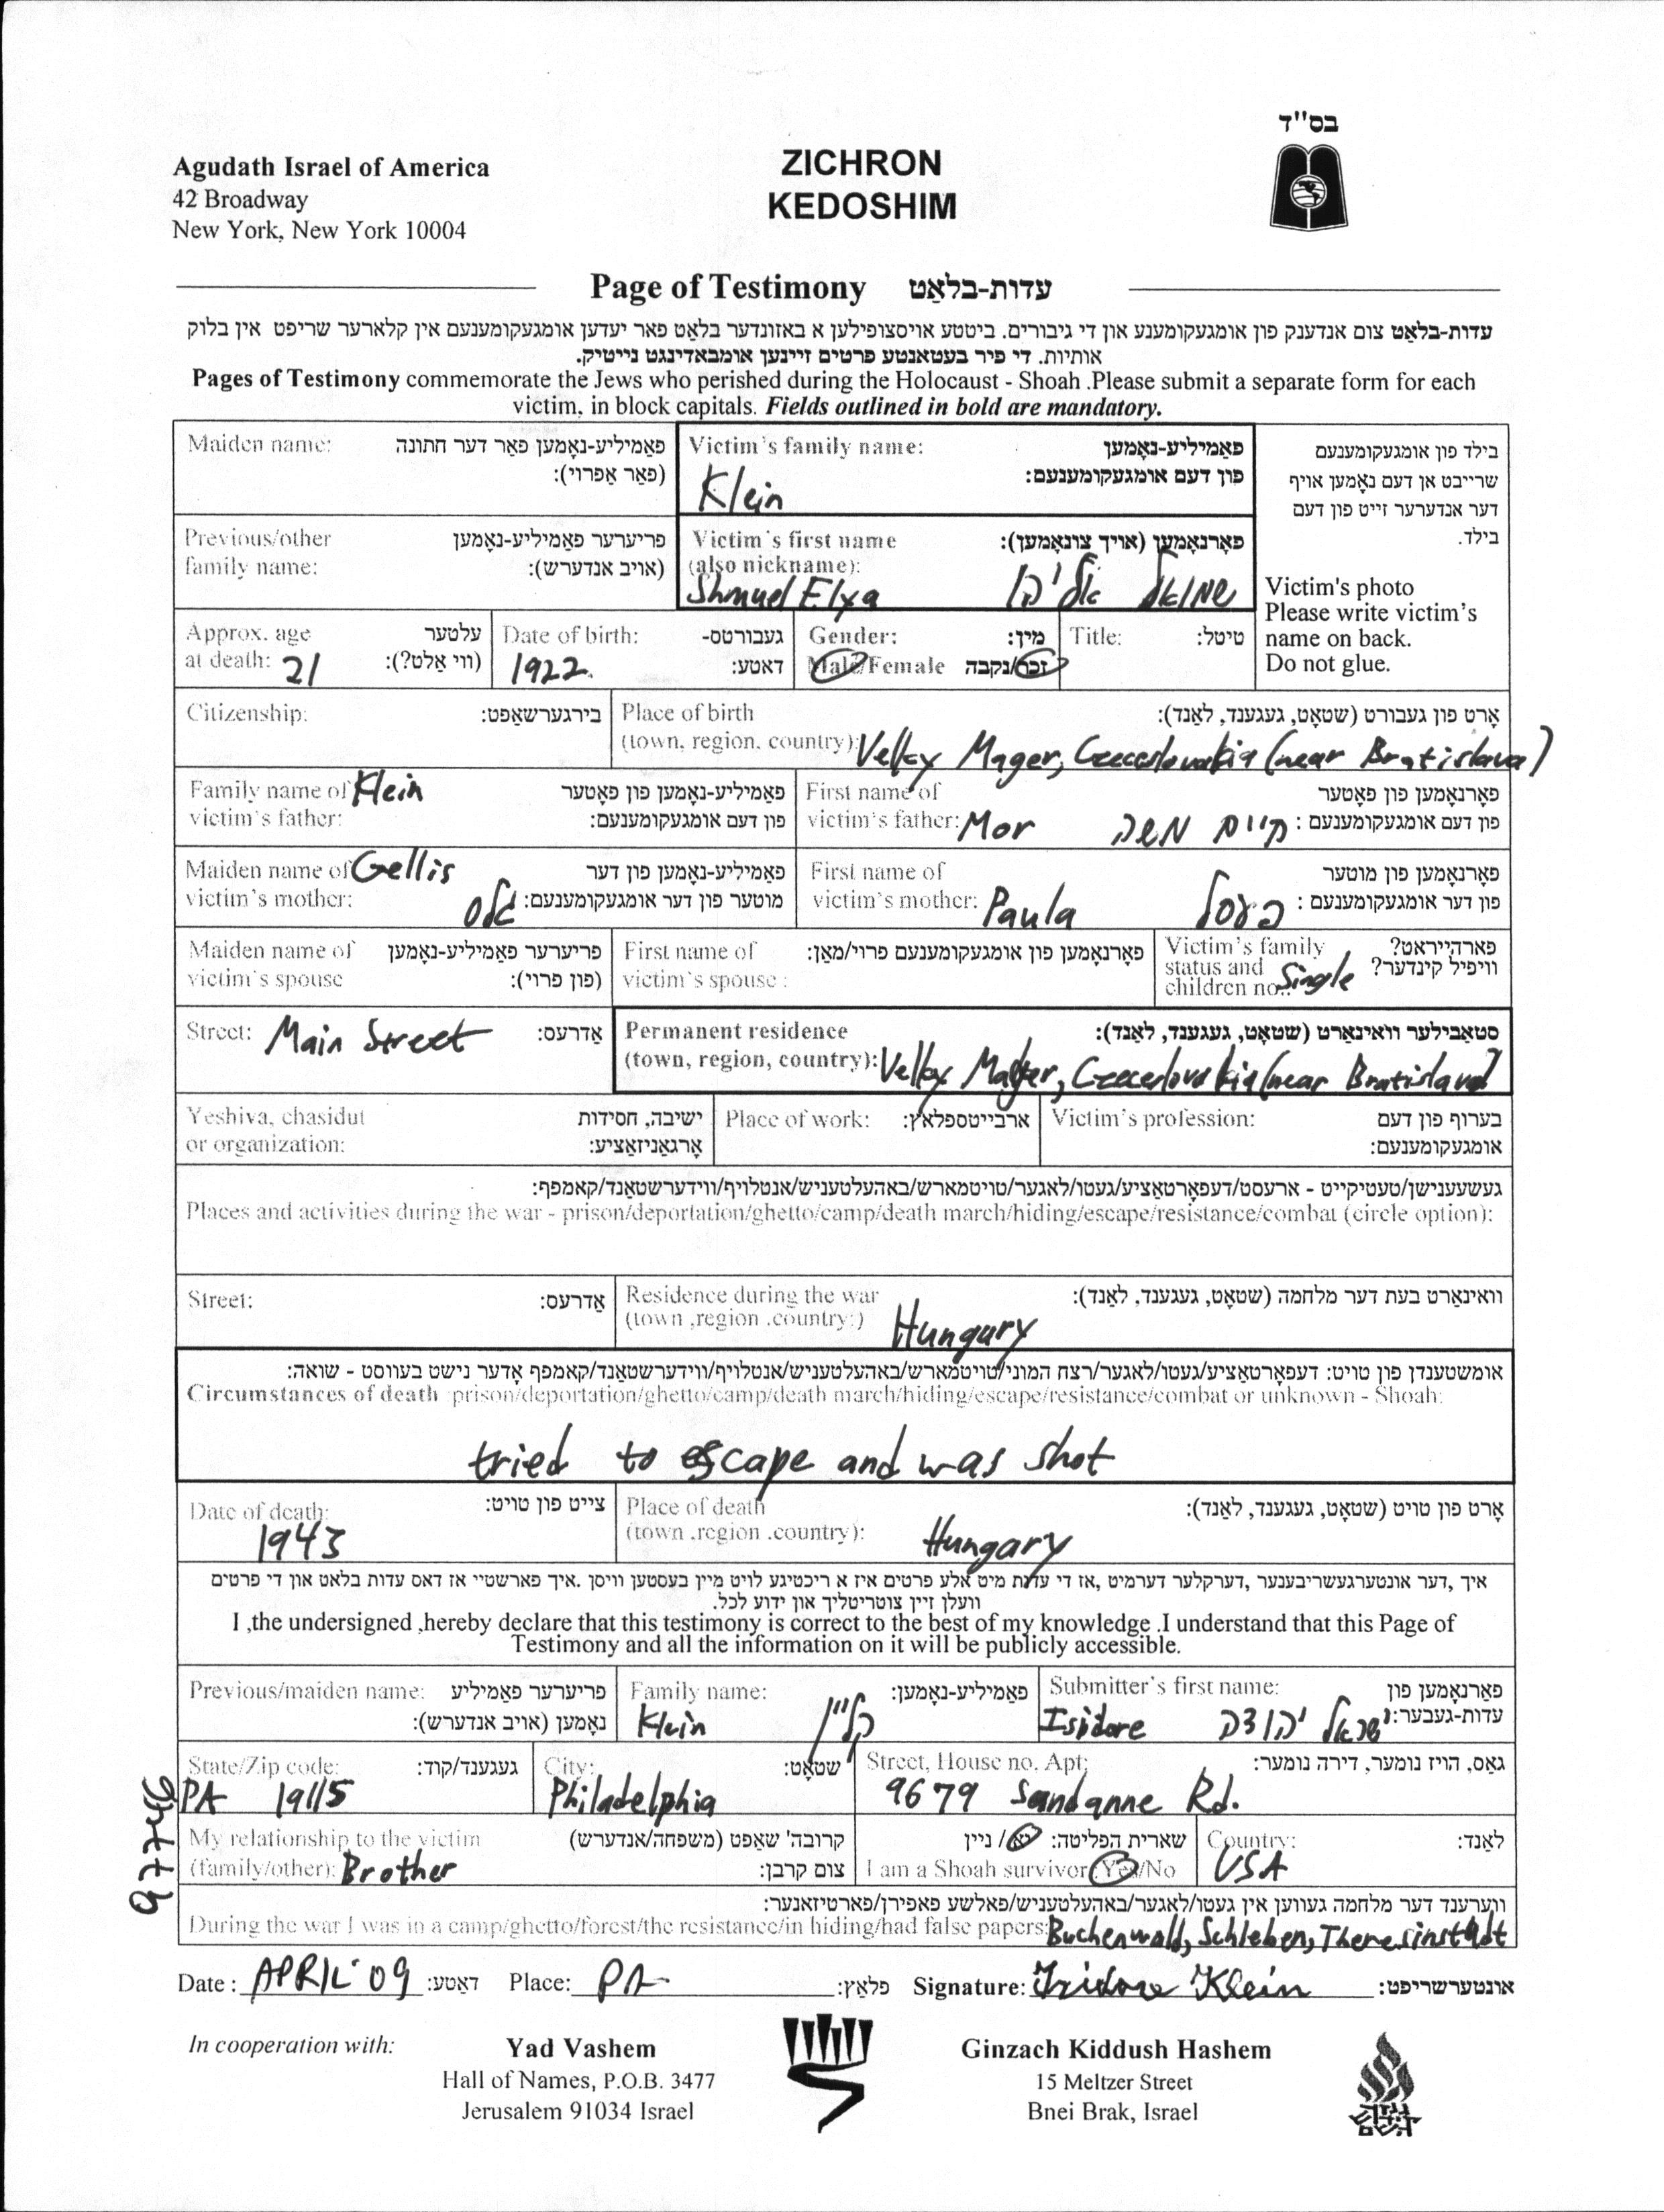 בס"ד
Agudath Israel of America
42 Broadway
New York, New York 10004
ZICHRON
KEDOSHIM
Page of Testimony עדות-בלאַט
עדות-בלאַט צום אנדענק פון אומגעקומענע און די גיבורים. ביטטע אויסצופילען א באזונדער בלאַט פאר יעדען אומגעקומענעם אין קלארער שריפט אין בלוק
אותיות. די פיר בעטאנטע פרטים זיינען אומבאדינגט נייטיק.
Pages of Testimony commemorate the Jews who perished during the Holocaust - Shoah .Please submit a separate form for each
victim, in block capitals. Fields outlined in bold are mandatory.
Maiden name: פאַמיליע-נאָמען פאַר דער חתונה
(פאַר אַפרוי):
Victim's family name: פאַמיליע-נאָמען
פון דעם אומגעקומענעם:
Klein
בילד פון אומגעקומענעם
שרייבט אן דעם נאָמען אויף
דער אנדערער זייט פון דעם
בילד.
Victim's photo
Please write victim's
name on back.
Do not glue.
Previous/other פריערער פאַמיליע-נאָמען
family name: (אויב אנדערש):
Victim's first name פאָרנאָמען (אויך צונאָמען):
(also nickname):
Shmuel Elya שמואל אליהו
Approx. age עלטער
at death: 21 (ווי אַלט?):
Date of birth: געבורטס-
1922. דאטע:
Gender: מין:
Male/Female זכר/נקבה
Title: טיטל:
Citizenship: בירגערשאַפט:
Place of birth אָרט פון געבורט (שטאָט, געגענד, לאַנד):
(town, region, country): Velky Mager, Czeceslovakia (near Bratislava)
Family name of Klein פאַמיליע-נאָמען פון פאָטער
victim's father: פון דעם אומגעקומענעם:
First name of פאָרנאָמען פון פאָטער
victim's father: Mor חיים משה פון דעם אומגעקומענעם:
Maiden name of Gellis פאַמיליע-נאָמען פון דער
victim's mother: גלס מוטער פון דער אומגעקומענעם:
First name of פאָרנאָמען פון מוטער
victim's mother: Paula פעסל פון דער אומגעקומענעם:
Maiden name of פריערער פאַמיליע-נאָמען
victim's spouse (פון פרוי):
First name of פאָרנאָמען פון אומגעקומענעם פרוי/מאַן:
victim's spouse :
Victim's family פארהייראט?
status and וויפיל קינדער?
children no.: Single
Street: Main Street אַדרעס:
Permanent residence סטאַבילער וואוינאָרט (שטאָט, געגענד, לאַנד):
(town, region, country): Velky Mager, Czecerlovakia (near Bratislava)
Yeshiva, chasidut ישיבה, חסידות
or organization: אָרגאַניזאַציע:
Place of work: ארבייטספלאץ:
Victim's profession: בערוף פון דעם
אומגעקומענעם:
געשעענישן/טעטיקייט - ארעסט/דעפאָרטאַציע/געטו/לאגער/טויטמארש/באהעלטעניש/אנטלויף/ווידערשטאַנד/קאמפף:
Places and activities during the war - prison/deportation/ghetto/camp/death march/hiding/escape/resistance/combat (circle option):
Street: אַדרעס:
Residence during the war וואוינאָרט בעת דער מלחמה (שטאָט, געגענד, לאַנד):
(town ,region .country:) Hungary
אומשטענדן פון טויט: דעפאָרטאַציע/געטו/לאגער/רצח המוני/טויטמארש/באהעלטעניש/אנטלויף/ווידערשטאַנד/קאמפף אָדער נישט בעוווסט - שואה:
Circumstances of death :prison/deportation/ghetto/camp/death march/hiding/escape/resistance/combat or unknown - Shoah:
tried to escape and was shot
Date of death: צייט פון טויט:
1943
Place of death אָרט פון טויט (שטאָט, געגענד, לאַנד):
(town .region .country): Hungary
איך ,דער אונטערגעשריבענער ,דערקלער דערמיט ,אז די עדות מיט אלע פרטים איז א ריכטיגע לויט מיין בעסטען וויסן .איך פארשטיי אז דאס עדות בלאט און די פרטים
וועלן זיין צוטריטליך און ידוע לכל.
I ,the undersigned ,hereby declare that this testimony is correct to the best of my knowledge .I understand that this Page of
Testimony and all the information on it will be publicly accessible.
Previous/maiden name: פריערער פאַמיליע
נאָמען (אויב אנדערש):
Family name: פאַמיליע-נאָמען:
Klein קליין
Submitter's first name: פאָרנאָמען פון
Isidore ישראל יהודה עדות-געבער:
State/Zip code: געגענד/קוד:
PA 19115
City: שטאָט:
Philadelphia
Street, House no. Apt: גאַס, הויז נומער, דירה נומער:
9679 Sandanne Rd.
My relationship to the victim קרובה' שאַפט (משפחה/אנדערש)
(family/other): Brother צום קרבן:
שארית הפליטה: יא/ ניין
I am a Shoah survivor: Yes/No
Country: לאַנד:
USA
97746
ווערענד דער מלחמה געווען אין געטו/לאגער/באהעלטעניש/פאלשע פאפירן/פארטיזאנער:
During the war I was in a camp/ghetto/forest/the resistance/in hiding/had false papers: Buchenwald, Schleben, Theresinstadt
Date : APRIL 09 דאַטע: Place: PA פלאַץ: Signature: Isidore Klein אונטערשריפט:
In cooperation with:
Yad Vashem
Hall of Names, P.O.B. 3477
Jerusalem 91034 Israel
Ginzach Kiddush Hashem
15 Meltzer Street
Bnei Brak, Israel